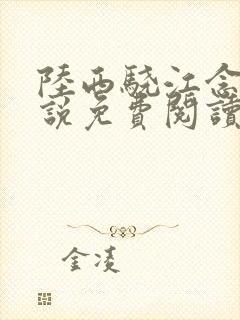 陸西驍江念
說免費閱讀
金凌